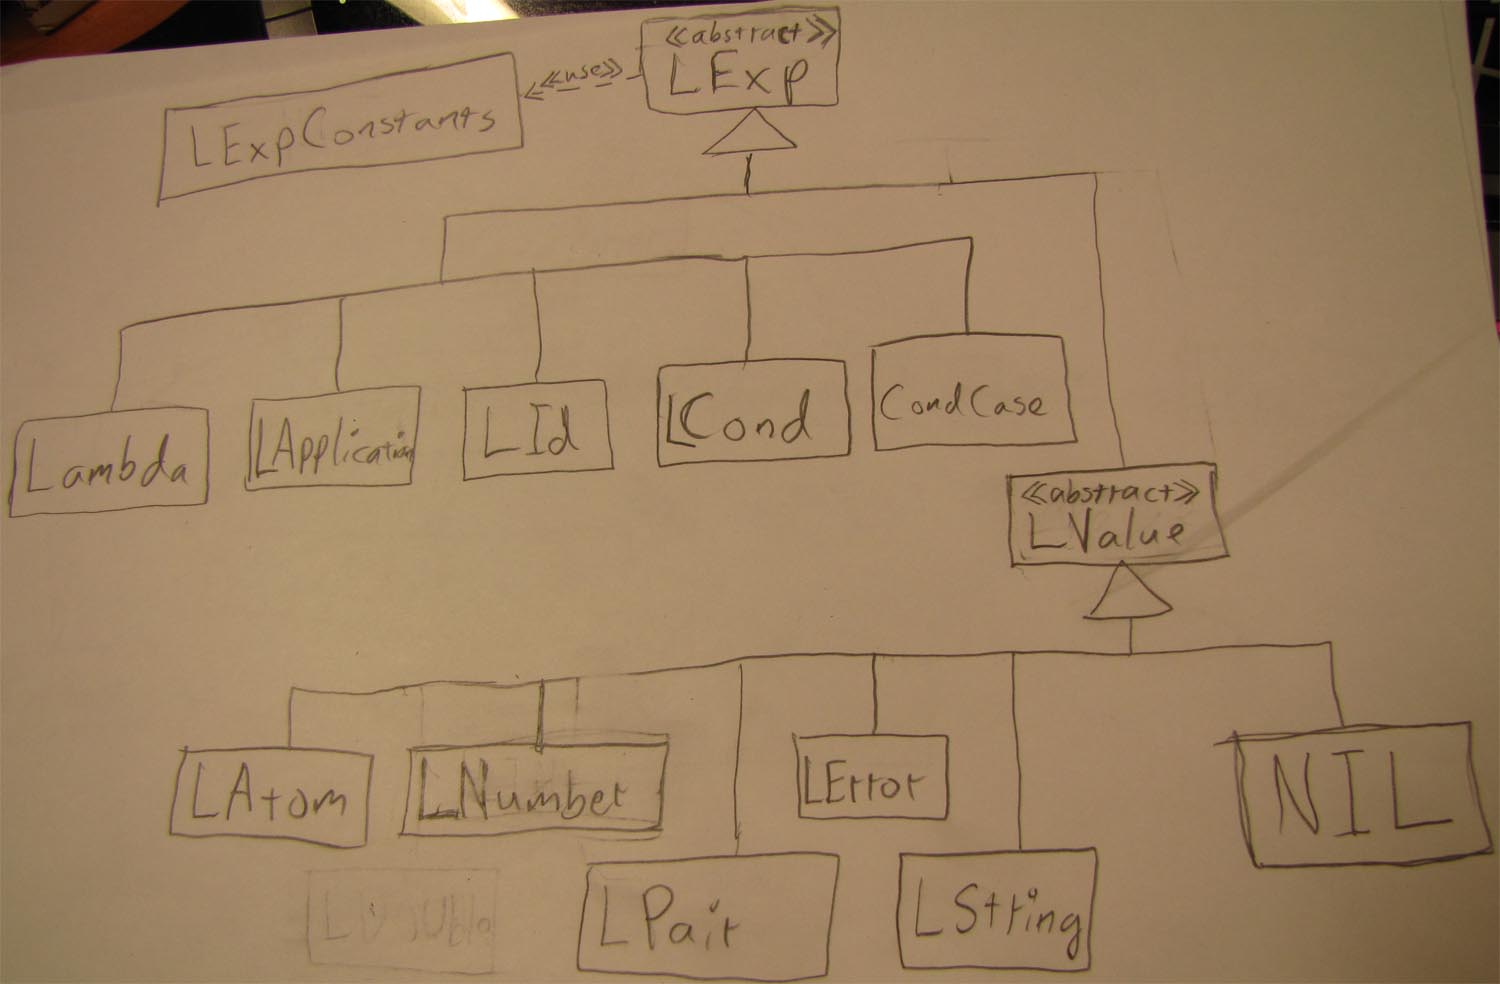 <<abstract>>
LExp
<<use>>
LExpConstants
Lambda
LApplication
LId
LCond
CondCase
<<abstract>>
LValue
LAtom
LNumber
LError
NIL
LDouble
LPair
LString